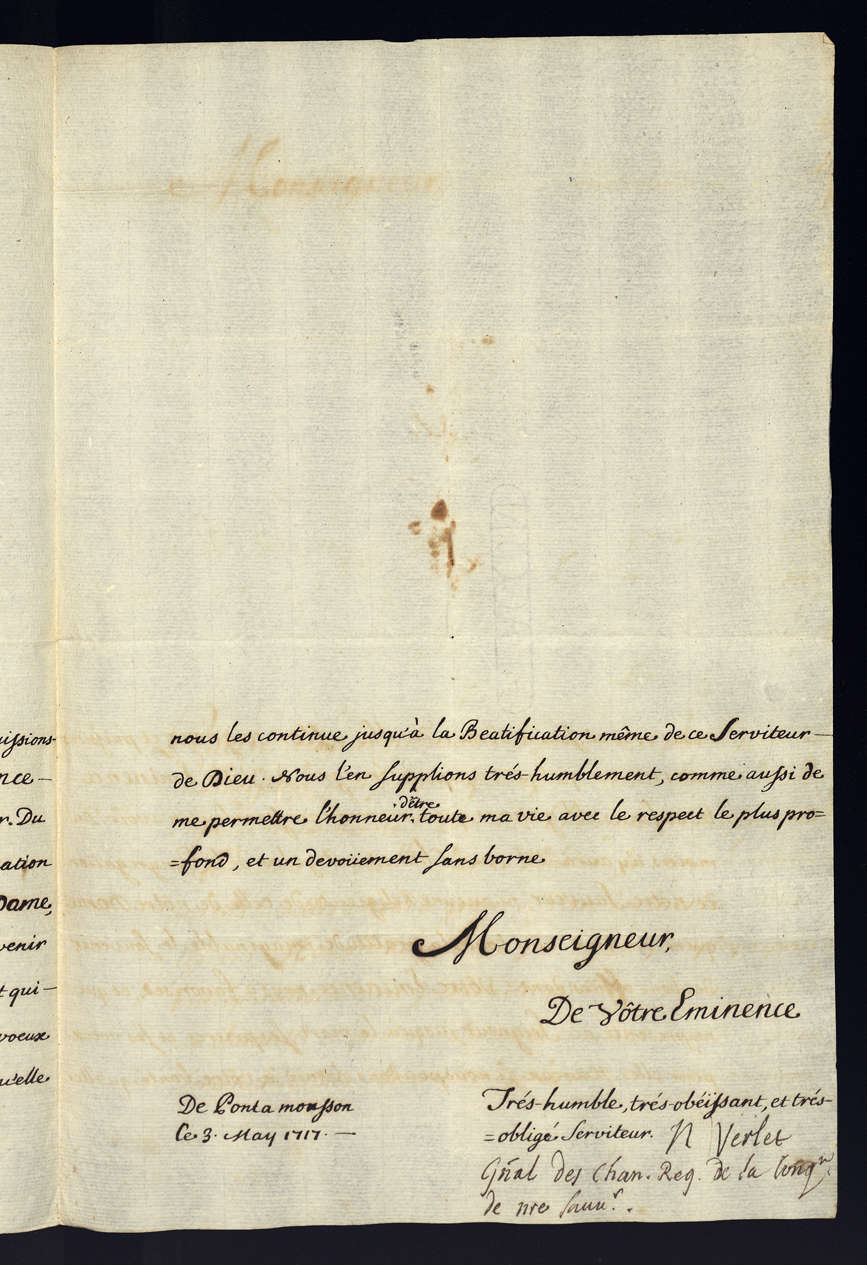 uissions-
nce-
r. Du
ation
Dame,
venir
t qui-
voeux
u'elle
nous les continue jusqu'à la Beatification même de ce Serviteur-
de Dieu. Nous l'en supplions trés-humblement, comme aussi de
me permettre l'honneur d'être toute ma vie avec le respect le plus pro=
=fond, et un devoüement sans borne
Monseigneur,
De Vôtre Eminence
De Pontamousson
Ce 3. May 1717.-
Trés-humble, trés-obéissant, et trés-
=obligé Serviteur. N Verlet
Gñal des Chan. Reg. de la Congn.
de nre Sauur.